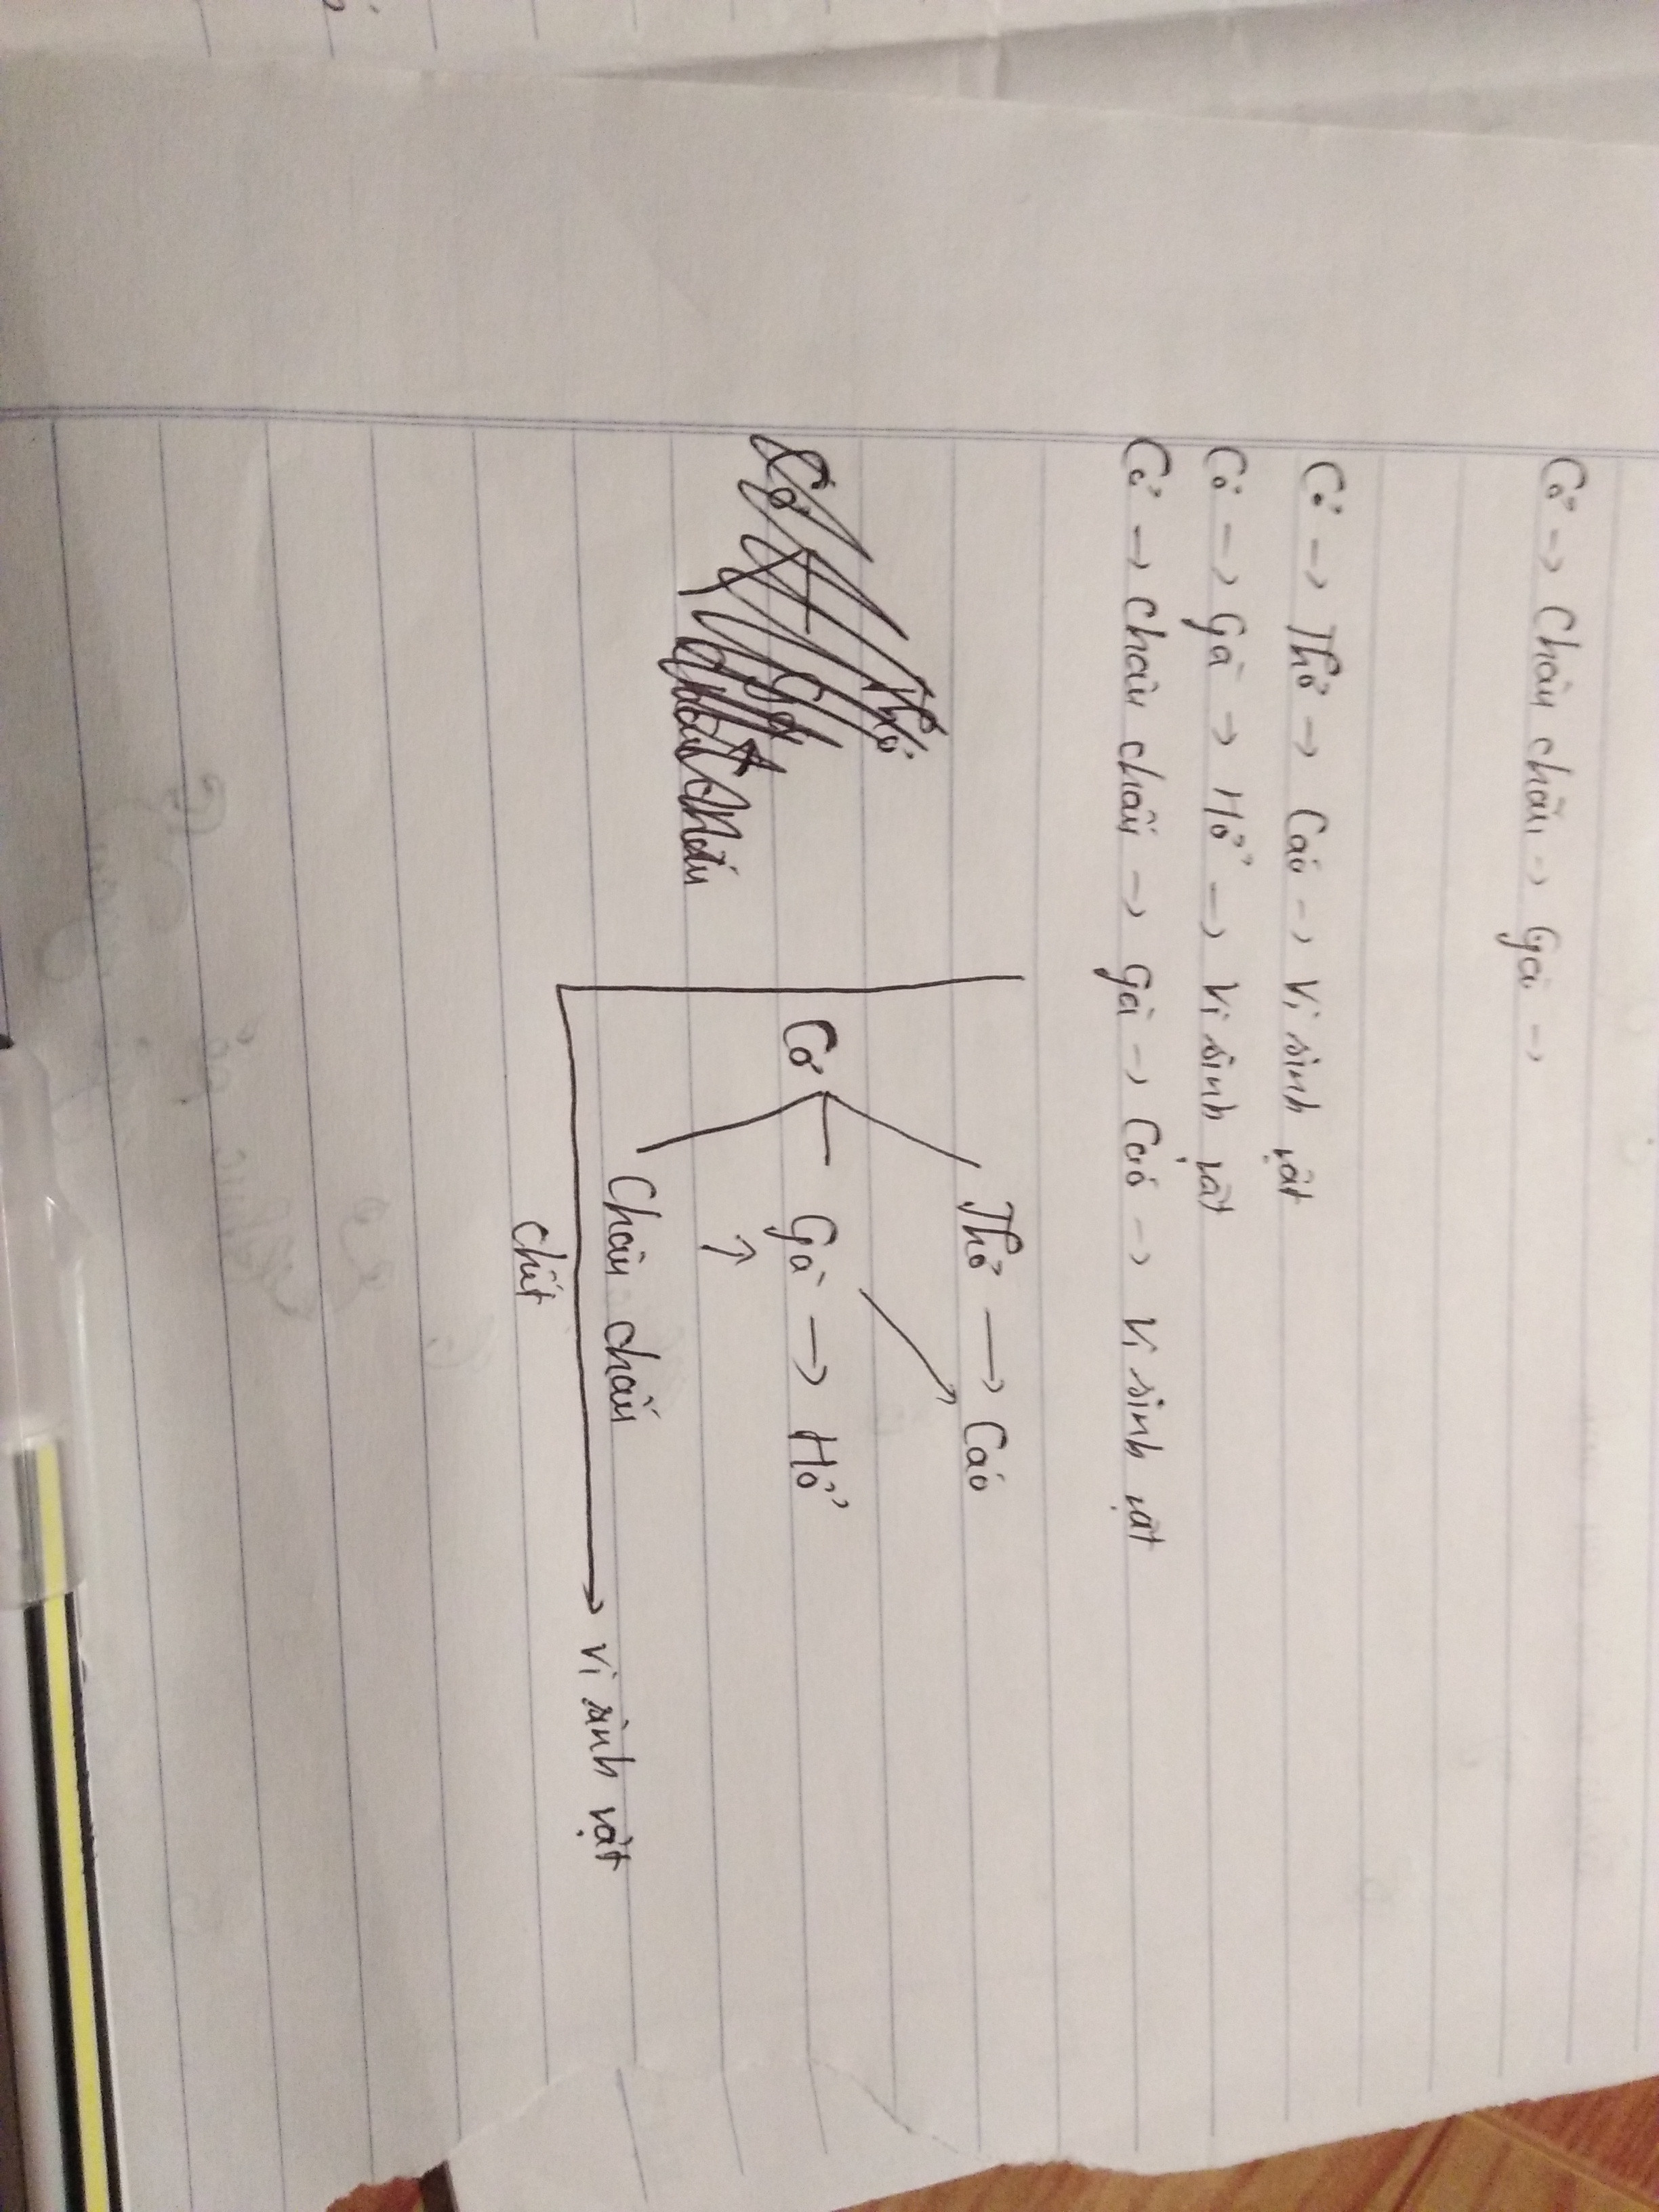 Cỏ → Châu chấu → Gà →
Cỏ → Thỏ → Cáo → Vi sinh vật
Cỏ → Gà → Hổ → Vi sinh vật
Cỏ → Châu chấu → Gà → Cáo → Vi sinh vật
Thỏ → Cáo
Cỏ Gà → Hổ
↑
Châu chấu
chết → Vi sinh vật